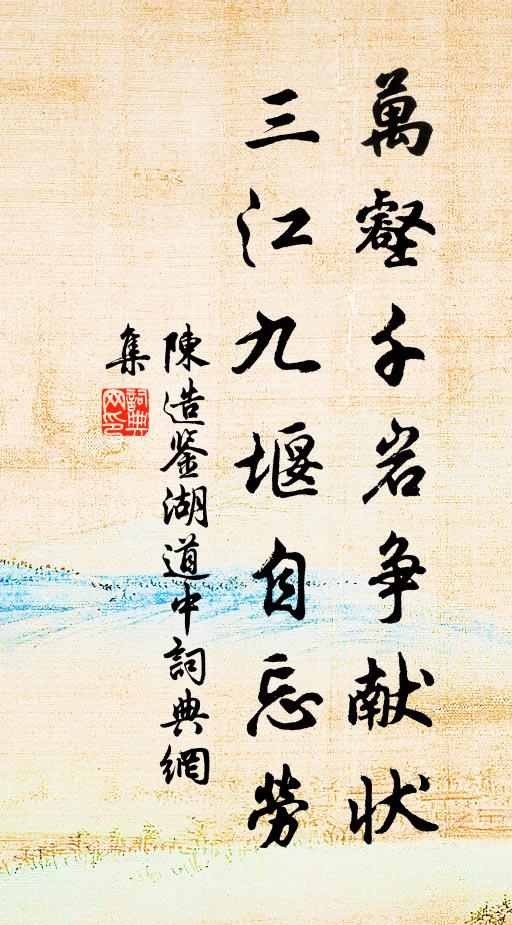 萬壑千岩争献状
三江九堰自忘勞
陳造鉴湖道中詞典網
集
詞典
网印